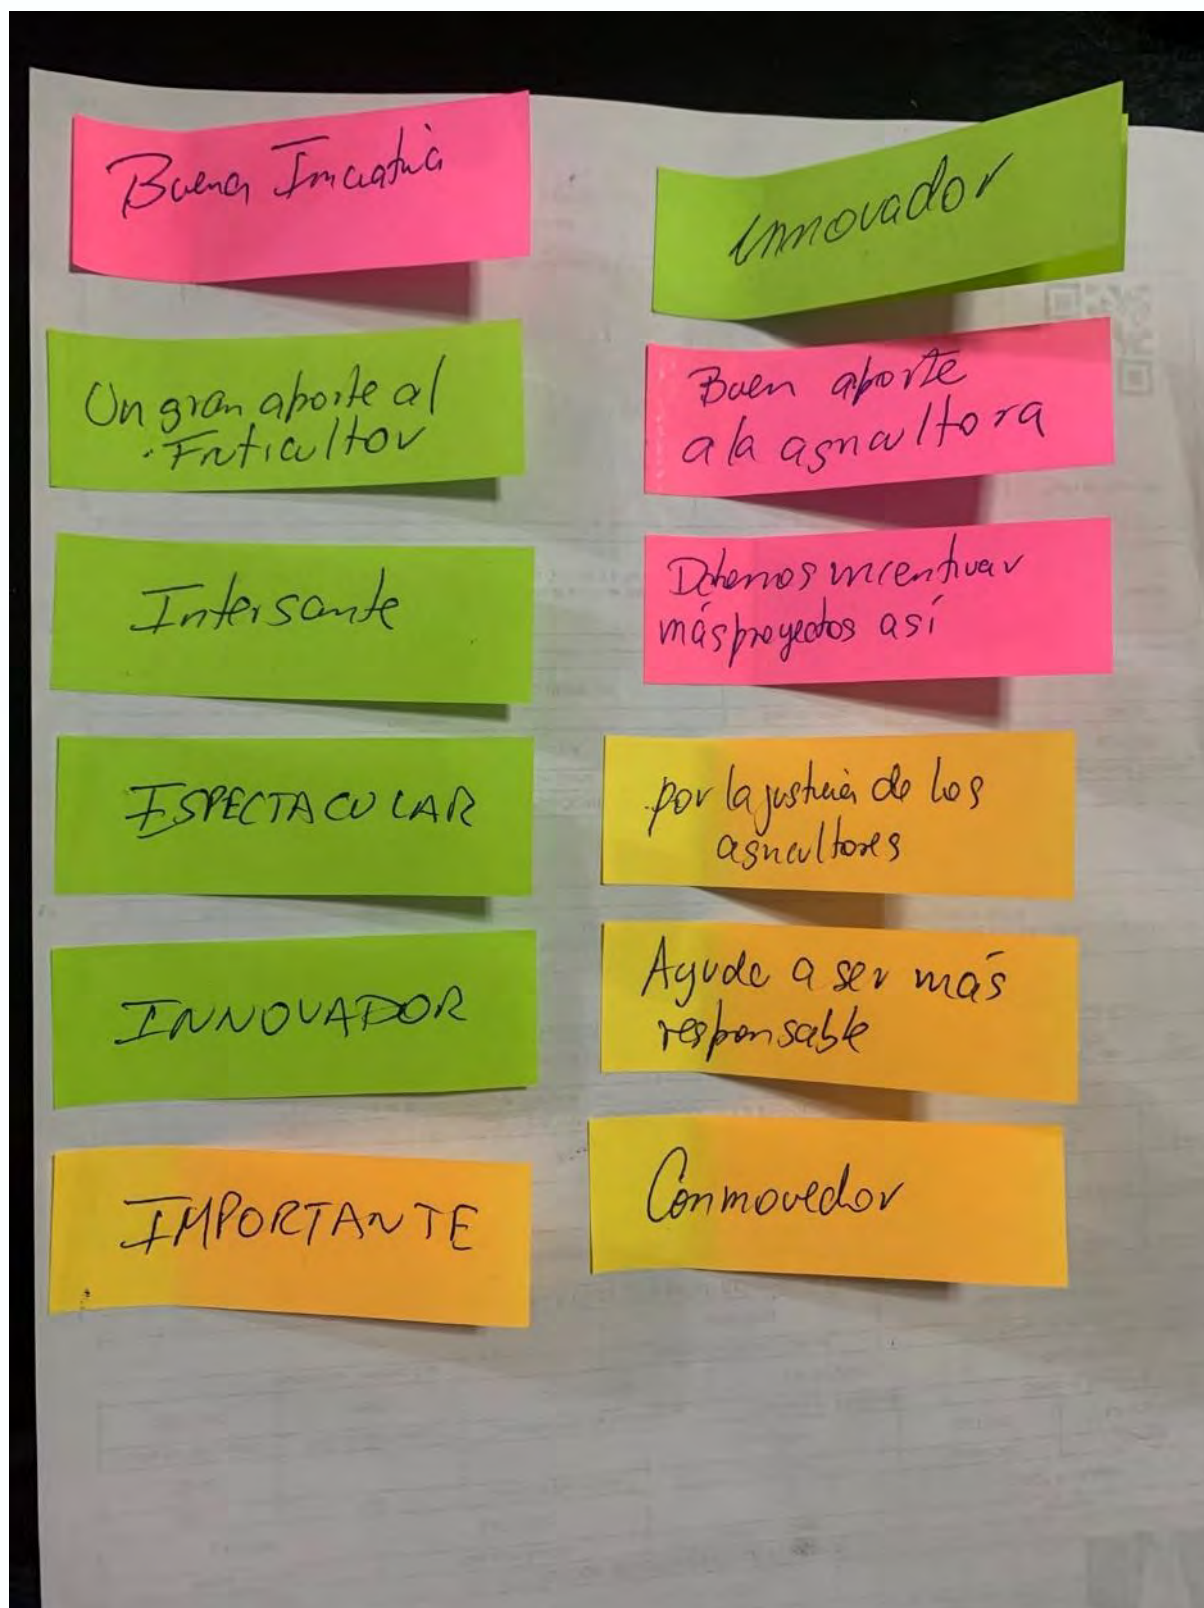 Buena Iniciativa
Un gran aporte al
Fruticultor
Intersante
ESPECTACULAR
INNOVADOR
IMPORTANTE
innovador
Buen aporte
a la agricultora
Debemos incentivar
más proyectos así
por la justicia de los
agricultores
Ayude a ser más
responsable
Conmovedor